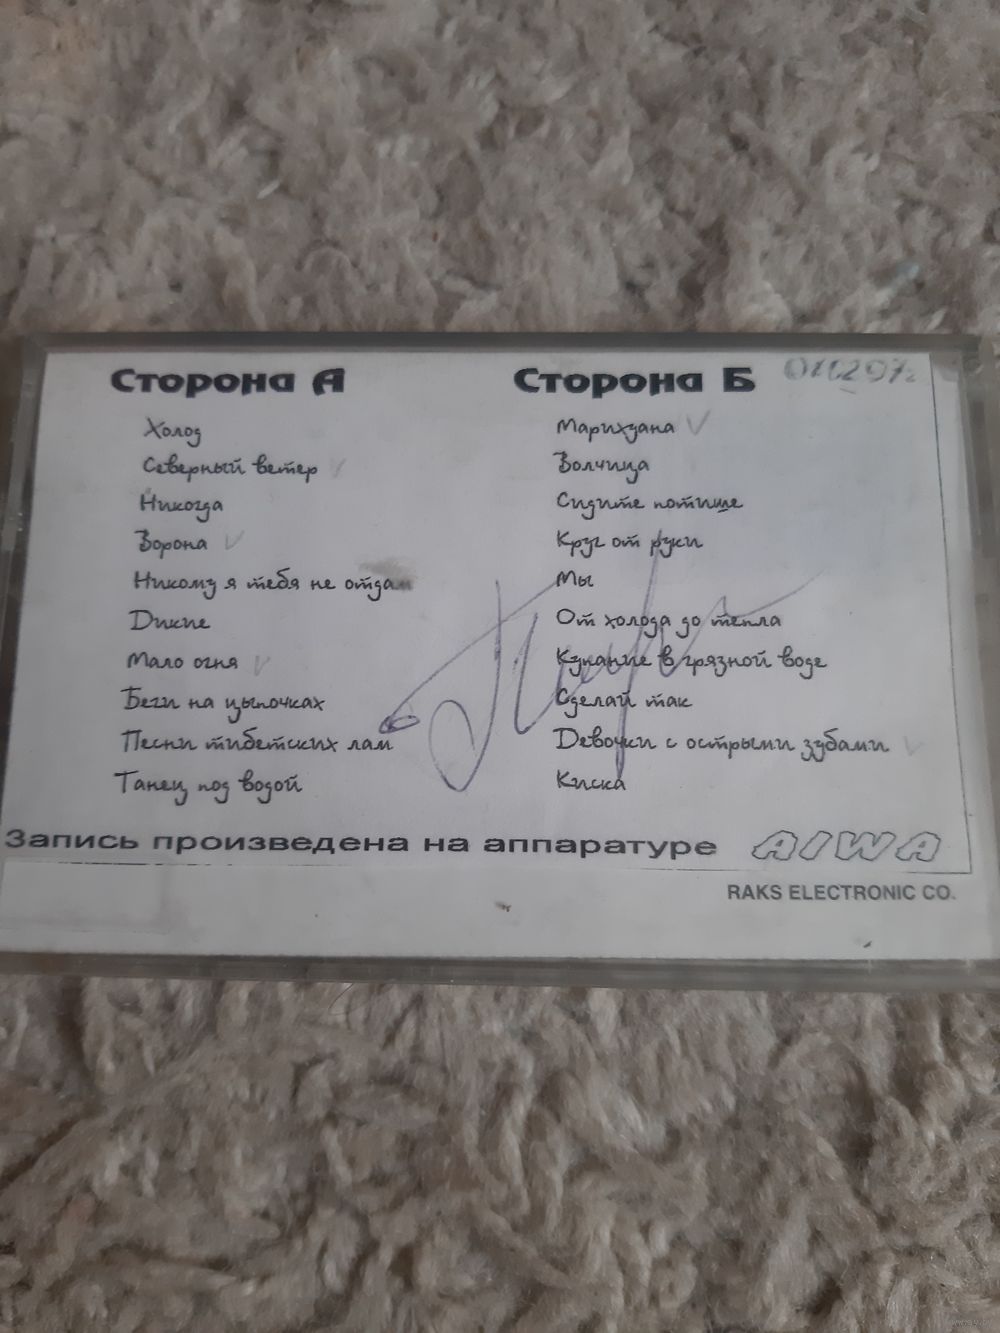 Сторона А
Холод
Северный ветер
Никогда
Ворона
Никому я тебя не отдам
Дикие
Мало огня
Беги на цыпочках
Песни тибетских лам
Танец под водой
Сторона Б
Марихуана
Волчица
Сидите потише
Круг от руки
Мы
От холода до тепла
Купание в грязной воде
Сделай так
Девочки с острыми зубами
Киска
Запись произведена на аппаратуре AIWA
RAKS ELECTRONIC CO.